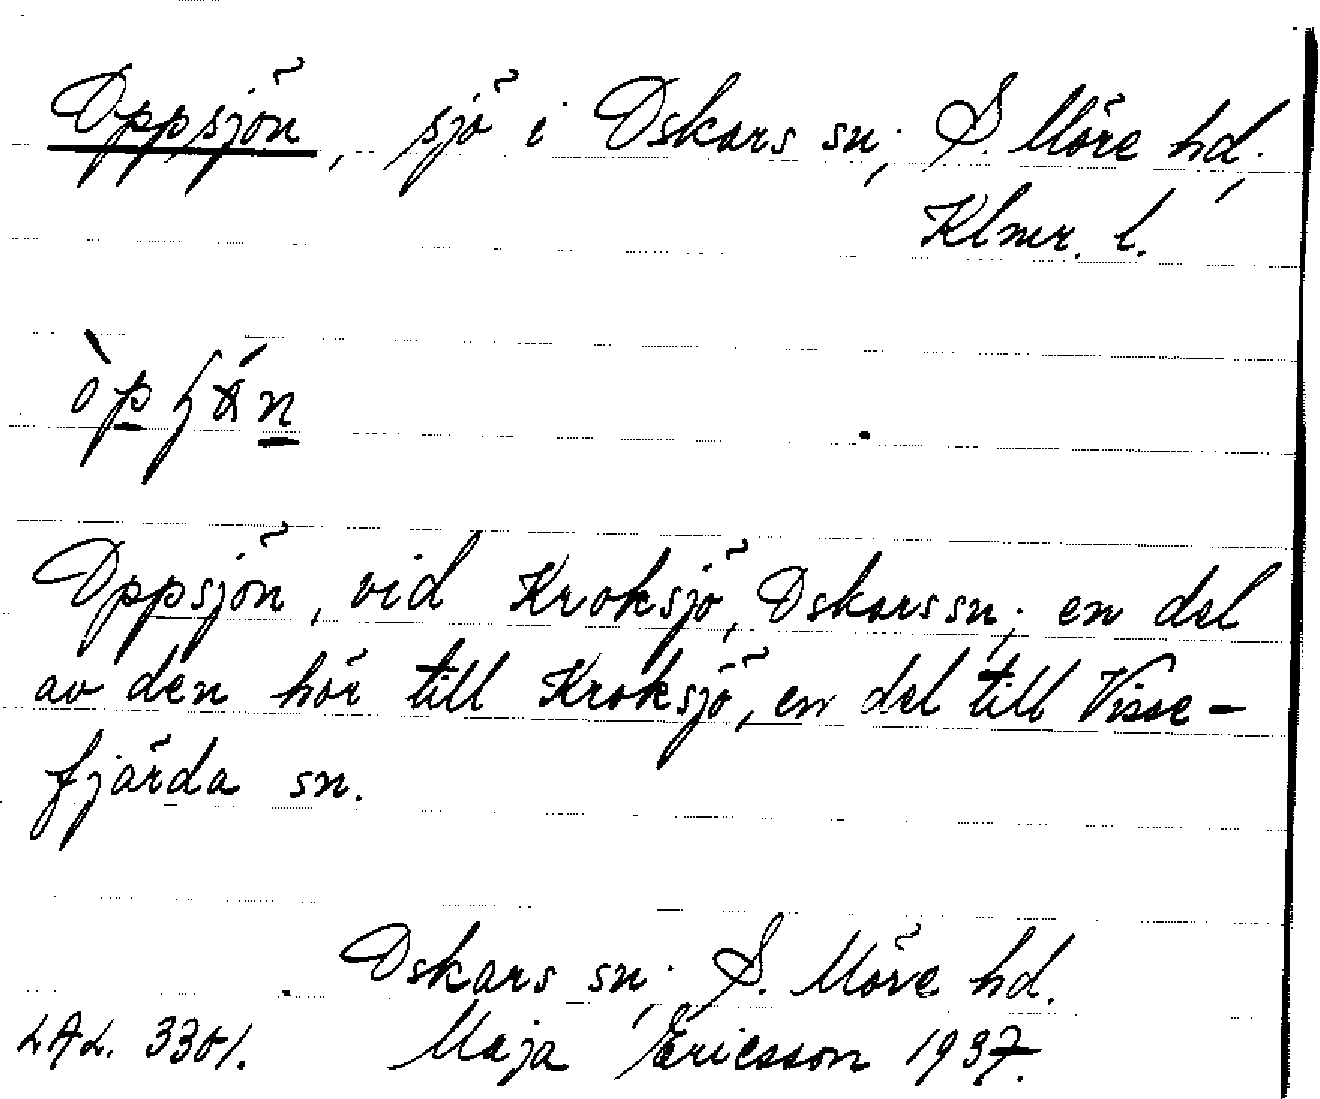 Oppsjön, sjö i Oskars sn; S. Möre hd,
Klmr. l.
Oppsjön, vid Kroksjö, Oskars sn; en del
av den hör till Kroksjö, en del till Visse-
fjärda sn.
Oskars sn; S. Möre hd.
LAL. 3301. Maja Ericsson 1937.